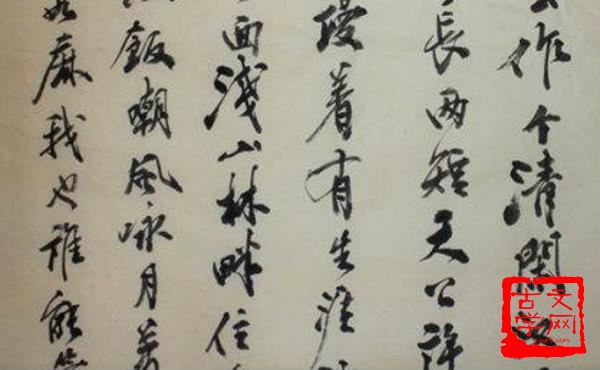 作个清閑
長两短天公許
着有生涯
面淺山林畔住
飯嘲風咏月
麻我也誰能
古文
学网